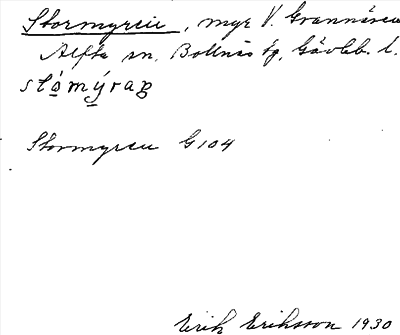 Stormyren, myr V. Grannäsen
Alfta sn. Bollnäs tg, Gävleb. l.
stómýraꞑ
Stormyren G 104
Erik Eriksson 1930